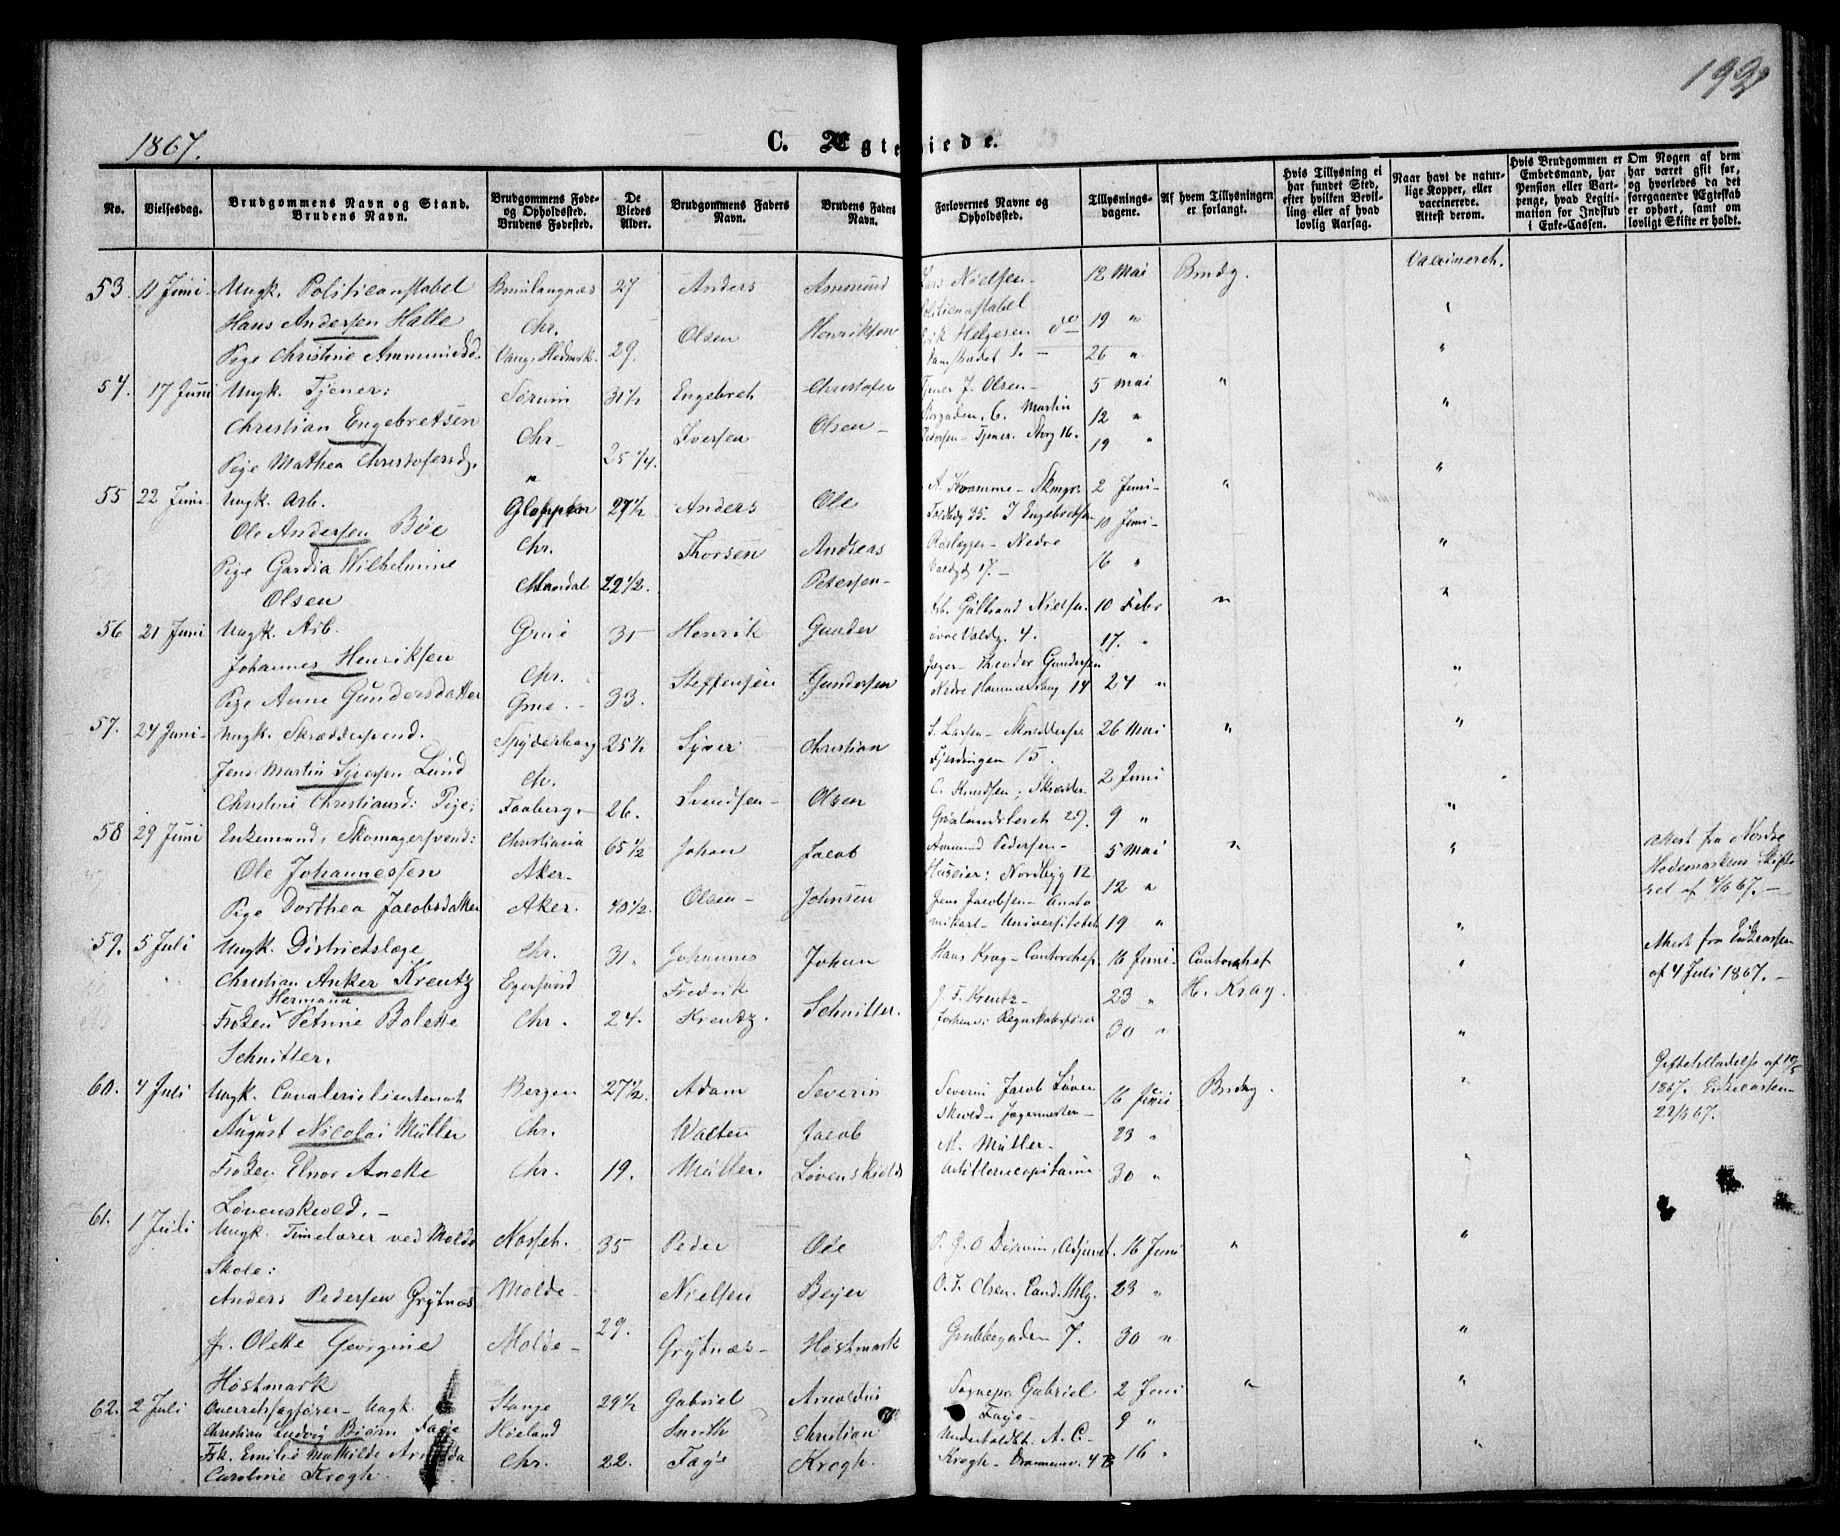 192
1867.
C. Ægteviede.
No.
Vielsesdag.
Brudgommens Navn og Stand.
Brudens Navn.
Brudgommens Føde-
og Opholdssted.
Brudens Fødested.
De
Viedes
Alder.
Brudgommens Faders
Navn.
Brudens Faders
Navn.
Forlovernes Navne og
Opholdssted.
Tillysnings-
dagene.
Af hvem Tillysningen
er forlangt.
Hvis Tillysning ei
har fundet Sted,
efter hvilken Bevil-
ling eller af hvad
lovlig Aarsag.
Naar havt de natur-
lige Kopper, eller
vaccinerede.
Attest derom.
Hvis Brudgommen er
Embedsmand, har
Pension eller Vart-
penge, hvad Legiti-
mation for Indskud
i Enke-Cassen.
Om Nogen af dem
har været gift før,
og hvorledes da det
foregaaende Ægteskab
er ophørt, samt om
lovligt Skifte er holdt.
53. 11 Juni Ungk. Politiconstabel Brunlangnæs 27 Anders Ammund Lars Nielsen 12 Mai Brudg. Vaccineret.
Hans Andersen Halle Chr. Olsen Henriksen Politiconstabel 19 "
Erik Helgesen do
Pige Christine Ammundsd. Vang, Hedmk. 29. 26 "
54. 17 Juni Ungk. Tjener: Sørum 31½ Engebret Christofer Tjener J. Olsen 5 Mai "
Christian Engebretsen Chr. Iversen Olsen Storgaden. C. Martin 12 "
Pige Mathea Christofersdg. " 25¼. Pedersen Tjener. Storg 16. 19 "
55 22 Juni Ungk. Arb. Gloppen 27½ Anders Ole A. Kvamme 2 Juni "
Ole Andersen Bøe Chr. Thorsen Andreas 35. J Engebretsen 10 Juni
Pige Gardia Wilhelmine Mandal 22½. Petersen Nedre 16 "
Olsen 17.
56 21 Juni Ungk. Arb. Grue 31 Henrik Gunder Arb. Gulbrand Nielsen 10 Febr "
Johannes Henriksen Chr. Steffensen Gundersen øvre Voldg. 4. 17. "
Pige Anne Gundersdatter Grue. 33. Theodor Gundersen
Nedre Hammersborg 14 24 "
57. 24 Juni Ungk. Skræddersvend. Spydeberg 25½ Syver Christian S. Larsen Skræddersv. 26 Mai "
Jens Martin Syversen Lund Chr. Svendsen Olsen Fjerdingen 15. 2 Juni
Christine Christiansd: Pige; Faaberg 26. C. Knudsen; Skrædder
Grønlandsleret 29. 9 "
58 29 Juni Enkemand, Skomagersvend: Christiania 65½ Johan Jacob Ammund Pedersen 5 Mai "
Ole Johannessen Aker. Olsen Johnsen Huseier; Nordbyg 12 12 "
Pige Dorthea Jacobsdatter Aker. 40½. Jens Jacobsen Anato
Universitetet 19 "
Attest fra Nordre
Hedemarkens Skifte
ret af 4/6 67.
59. 5 Juli Ungk. Districtslæge Chr. 31. Johannes Johan Hans Krag Contorchef. 16 Juni Contorchef
Christian Anker Kreutz Egersund Fredrik Schnitler. J. F. Kreutz 23 " H. Krag.
Hermana
Frøken Petrine Bolette Chr. 24. Kreutz. Regnskabsfører 30 "
Schnitler.
Attest fra Enkecassen
af 4 Juli 1867.
60. 4 Juli Ungk. Cavalerielieutenant Bergen 27½. Adam Severin Severin Jacob Løven 16 Juni Brudg.
August Nicolai Müller Chr. Walter Jacob skiold Jægermester 23 "
M. Müller
Frøken Elnor Anette Chr. 19. Müller. Løvenskiold Artillericapitaine 30 "
Løvenskiold.
Giftetilladelse af 10/5
1867. Enkecassen
22/6 67.
61. 1 Juli Ungk. Timelærer ved Molde Nesset. 35 Peder Ole P. O Adjunct. 16 Juni "
Skole:
Anders Pedersen Grytnæs Molde Nielsen Bejer O. J. Olsen. Cand. Philg. 23 "
Fr. Olette Georgine Molde 29. Grytnæs Høstmark Grubbegaden 7. 30 "
Høstmark
62. 2 Juli Overretssagfører Ungk. Stange 29½ Gabriel Arnoldus Sognepr. Gabriel 2 Juni "
Christian Ludvig Bjørn Faye Høland Smith Christian Faye 9 "
Frk. Emilie Mathilde Arnolda Chr. 22. Faye Krogh. A. C.
Caroline Krogh. Krogh 4 B 16 "